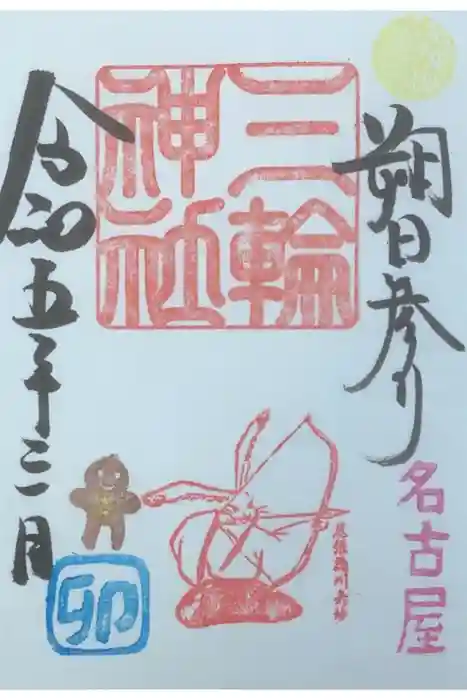 朔日参り
名古屋
三輪
神社
令和五年三月
卯